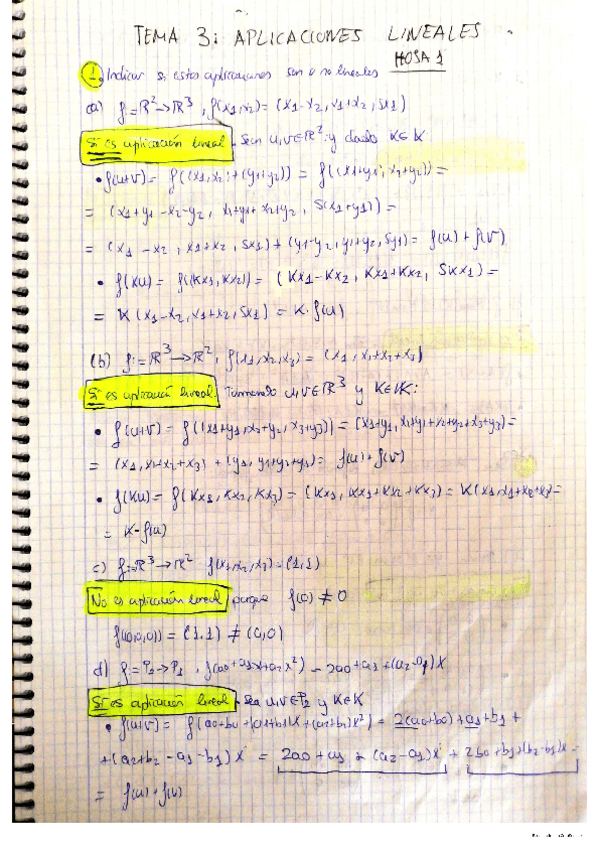 TEMA 3: APLICACIONES LINEALES
HOJA 1
1. Indicar si estas aplicaciones son o no lineales
a) f: ℝ² → ℝ³, f(x1,x2) = (x1-x2, x1+x2, 5x1)
Si es aplicación lineal. Sean u,v∈ℝ² y dado K∈K
• f(u+v) = f((x1,x2)+(y1+y2)) = f((x1+y1, x2+y2)) =
= (x1+y1-x2-y2, x1+y1+x2+y2, 5(x1+y1)) =
= (x1-x2, x1+x2, 5x1) + (y1-y2, y1+y2, 5y1) = f(u) + f(v)
• f(Ku) = f((Kx1, Kx2)) = (Kx1-Kx2, Kx1+Kx2, 5Kx1) =
= K(x1-x2, x1+x2, 5x1) = K·f(u)
(b) f: = ℝ³ → ℝ², f(x1,x2,x3) = (x1, x1+x2+x3)
Si es aplicación lineal. Tomando u,v∈ℝ³ y K∈K:
• f(u+v) = f((x1+y1, x2+y2, x3+y3)) = (x1+y1, x1+y1+x2+y2+x3+y3) =
= (x1, x1+x2+x3) + (y1, y1+y2+y3) = f(u)+f(v)
• f(Ku) = f(Kx1, Kx2, Kx3) = (Kx1, Kx1+Kx2+Kx3) = K(x1, x1+x2+x3) =
= K·f(u)
c) f: = ℝ³ → ℝ² f(x1,x2,x3) = (1,1)
No es aplicación lineal porque f(0) ≠ 0
f((0,0,0)) = (1,1) ≠ (0,0)
d) f: = P2 → P1, f(a0+a1x+a2x²) = 2a0+a1+(a2-a1)x
Si es aplicación lineal. Sea u,v∈P2 y K∈K
• f(u+v) = f(a0+b0+(a1+b1)x+(a2+b2)x²) = 2(a0+b0)+a1+b1+
+(a2+b2-a1-b1)x = 2a0+a1+(a2-a1)x + 2b0+b1+(b2-b1)x =
= f(u)+f(v)